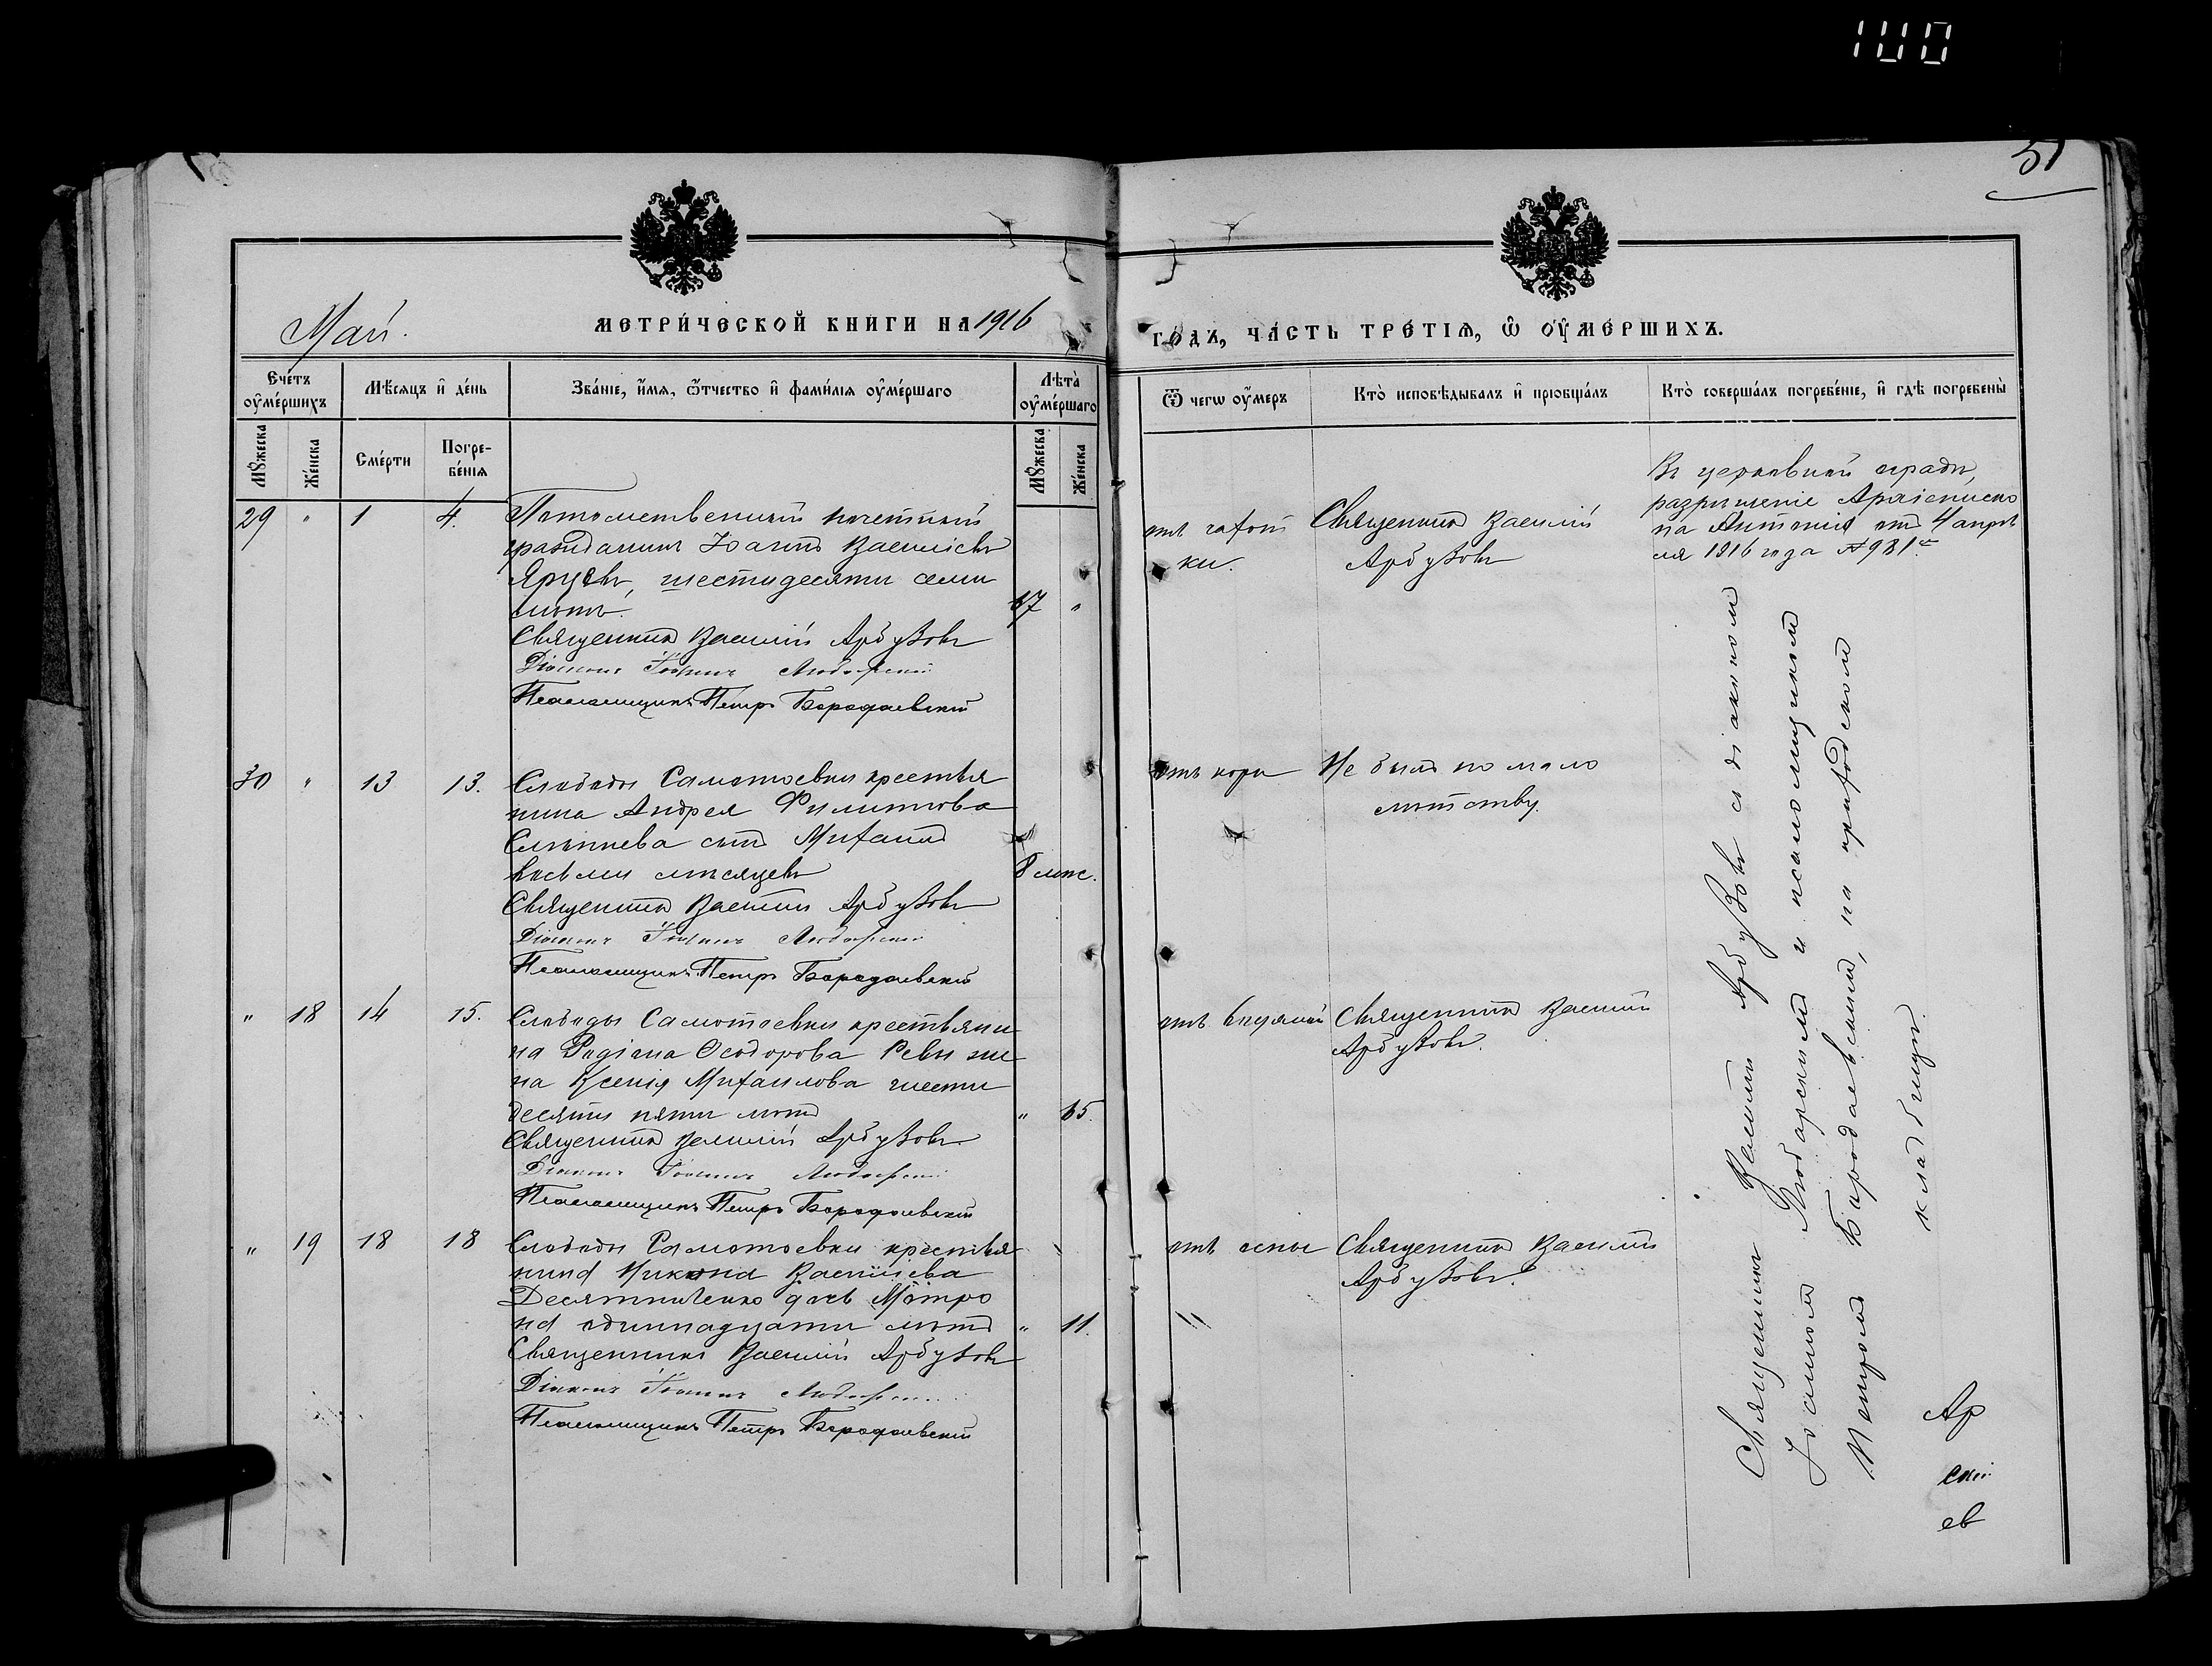 100
51
Май.
МЕТРИ́ЧЕСКОЙ КНИ́ГИ НА 1916
ГО́ДЪ, ЧА́СТЬ ТРЕ́ТІѦ, Ѡ ОУ҆МЕ́РШИХЪ.
Счетъ оу҆ме́ршихъ
Мѣсяцъ и҆ де́нь
Зва́ніе, и҆́мя, ѻ҆́тчество и҆ фами́лія оу҆ме́ршаго
Лѣта̀ оу҆ме́ршаго
Ѿ чегѡ оу҆́меръ
Кто̀ исповѣ́дывалъ и҆ пріобща́лъ
Кто̀ соверша́лъ погребе́ніе, и҆ гдѣ̀ погребены̀
Мꙋжеска
Же́нска
Сме́рти
Погре-
бе́нія
Мꙋжеска
Же́нска
29 " 1 4.
Потомственный почетный
гражданинъ Іоаннъ Васильевъ
Яруевъ, шестидесяти семи
лѣтъ.
67 "
Священникъ Василій Арбузовъ
Діаконъ Іоаннъ
Псаломщикъ Петръ Бородаевскій
отъ чахот
ки.
Священникъ Василій
Арбузовъ
Въ церковной оградѣ,
разрѣшеніе Архіеписко
па Антонія отъ 4 апрѣ
ля 1916 года № 981.
30 " 13 13.
Слободы Самотоевки крестья
нина Андрея Филиппова
сынъ Михаилъ
восьми мѣсяцевъ
8 мѣс.
Священникъ Василій Арбузовъ
Діаконъ Іоаннъ
Псаломщикъ Петръ Бородаевскій
отъ кори
Не былъ по мало
лѣтству.
" 18 14 15.
Слободы Самотоевки крестьяни
на Родіона Ѳеодорова Ревы же
на Ксенія Михаилова шести
десяти пяти лѣтъ
" 65.
Священникъ Василій Арбузовъ
Діаконъ Іоаннъ
Псаломщикъ Петръ Бородаевскій
отъ водяной
Священникъ Василій
Арбузовъ.
" 19 18 18
Слободы Самотоевки крестья
нина Никона Васильева
Десятниченко дочь Матро
на одиннадцати лѣтъ
" 11.
Священникъ Василій Арбузовъ
Діаконъ Іоаннъ
Псаломщикъ Петръ Бородаевскій
отъ оспы
Священникъ Василій
Арбузовъ.
Священникъ Василій Арбузовъ съ діакономъ
Іоанномъ и псаломщикомъ
Петромъ Бородаевскимъ, на приходскомъ
кладбищѣ.
Ар
скій
ев